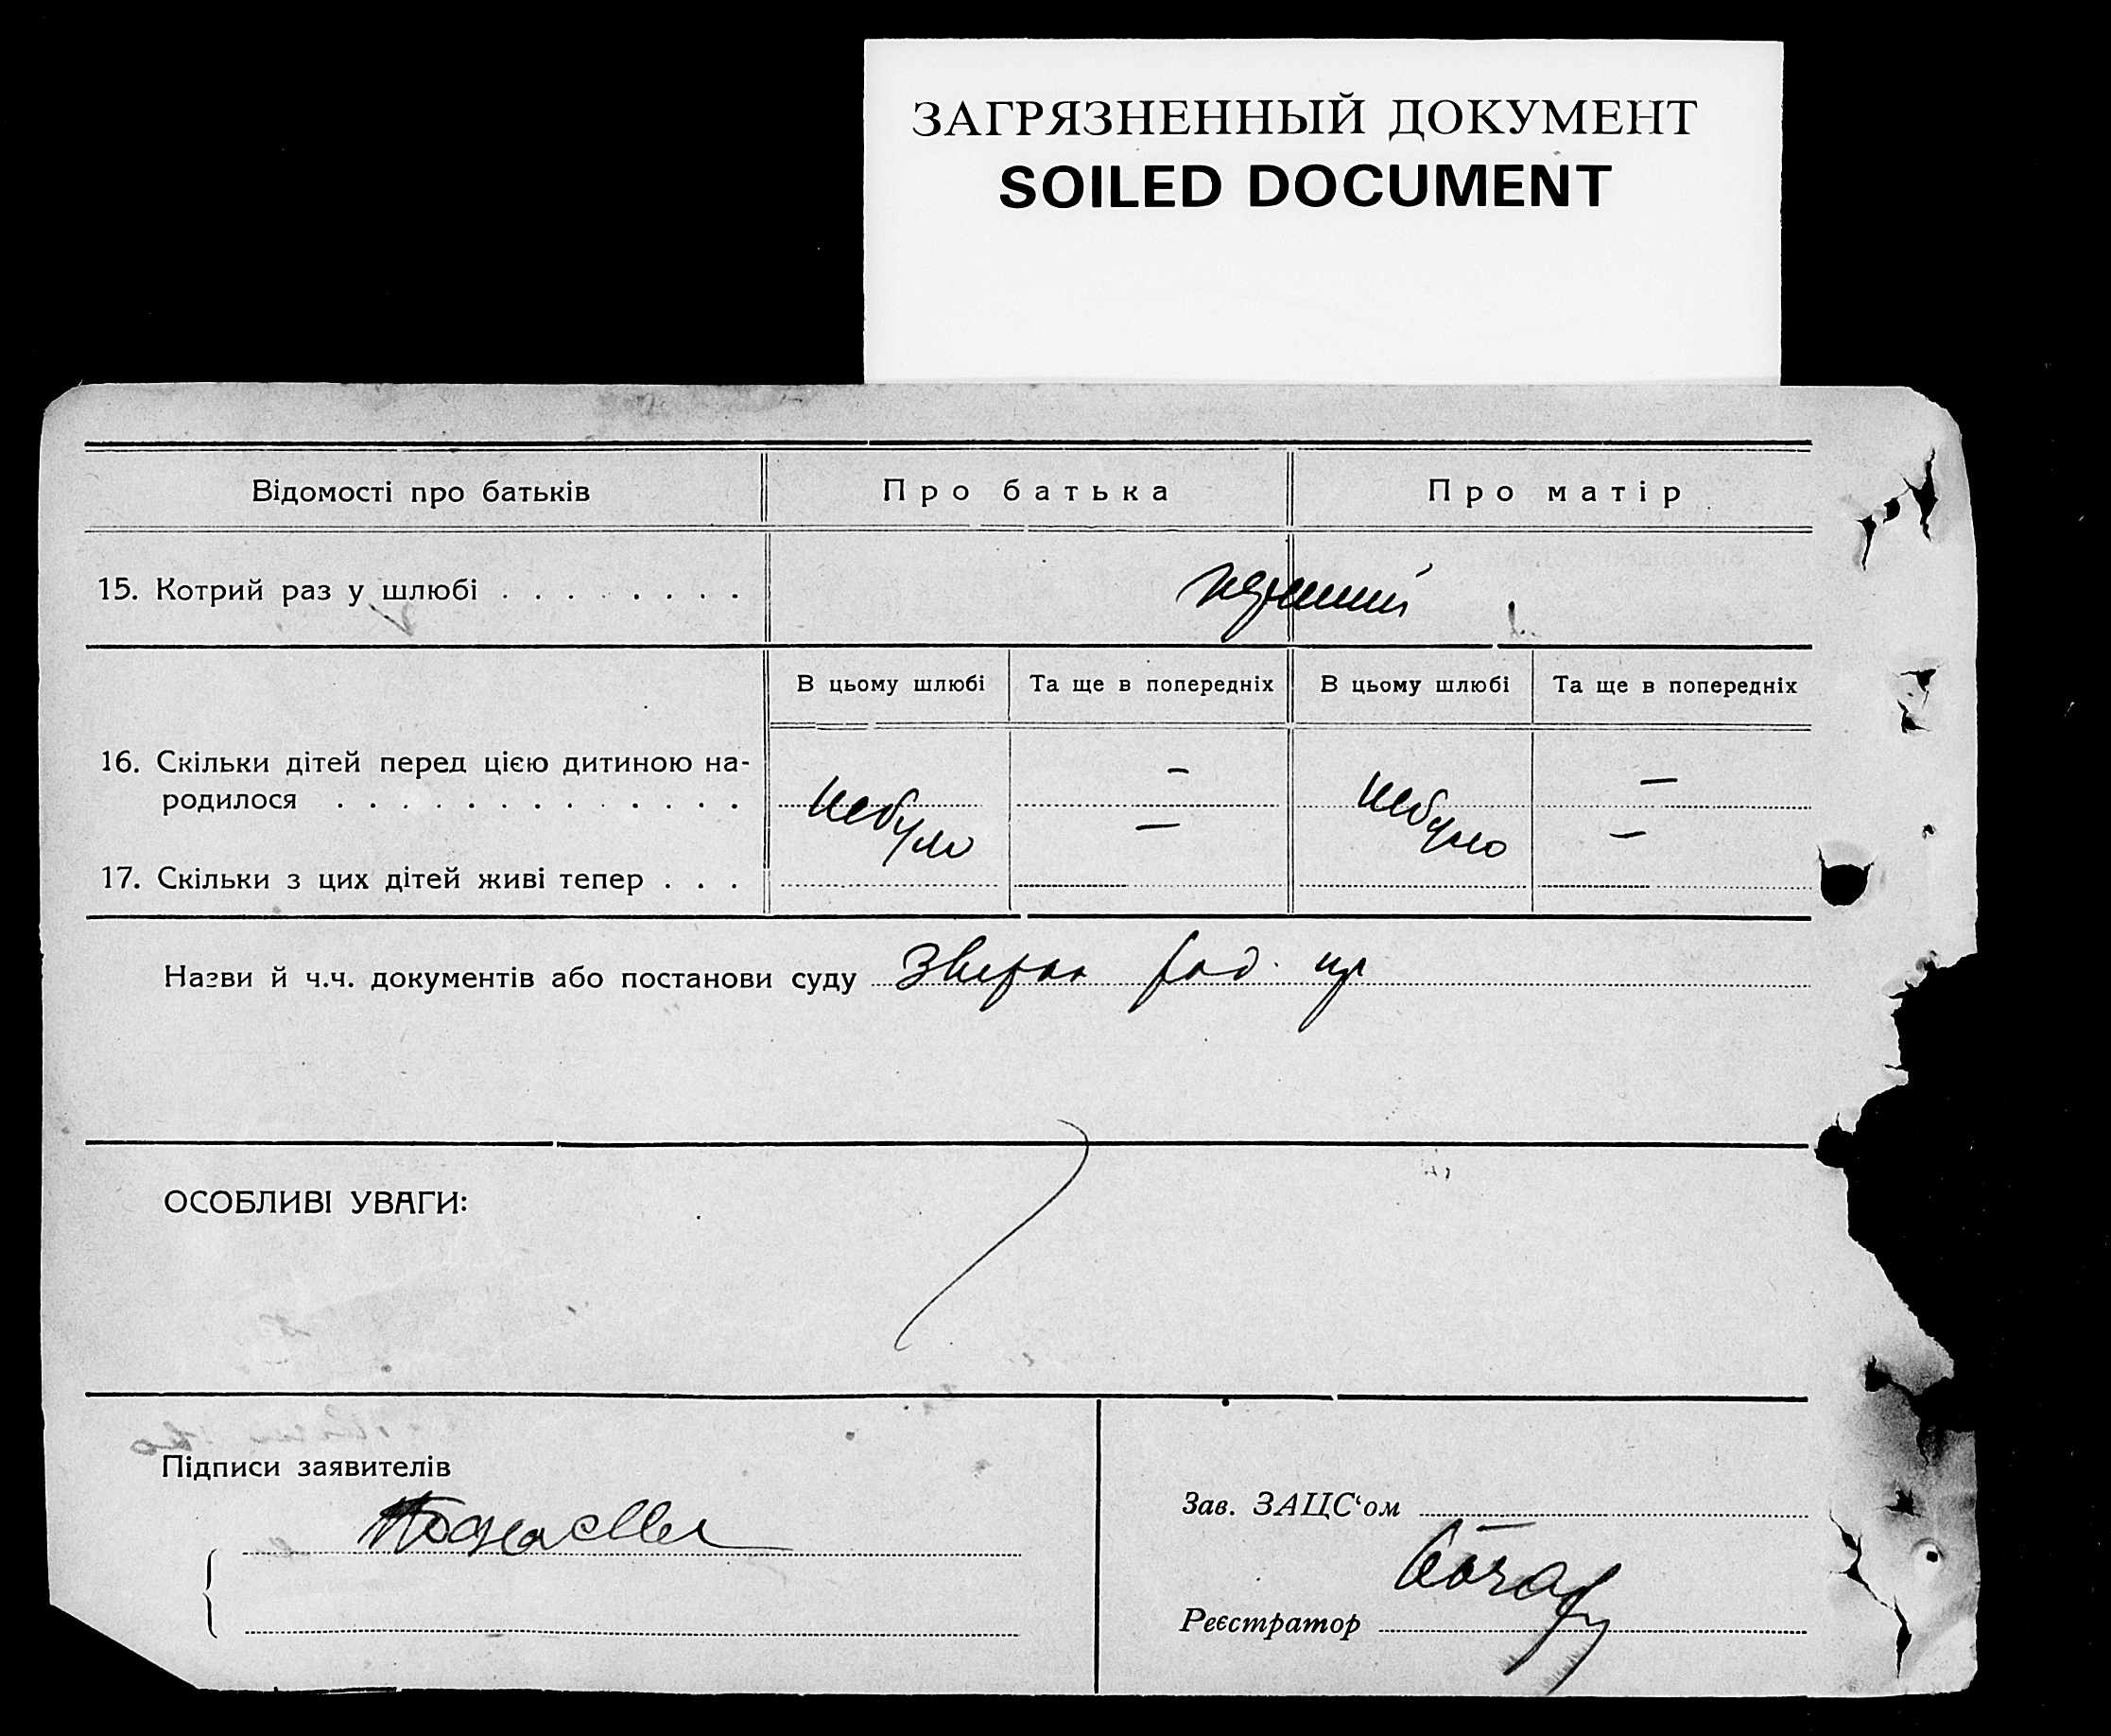 ЗАГРЯЗНЕННЫЙ ДОКУМЕНТ
SOILED DOCUMENT
Відомості про батьків
Про батька
Про матір
15. Котрий раз у шлюбі . . . . . . . .
перший
В цьому шлюбі
Та ще в попередніх
В цьому шлюбі
Та ще в попередніх
16. Скільки дітей перед цією дитиною на-
родилося . . . . . . . . . . . . .
небуло
—
небуло
—
—
—
17. Скільки з цих дітей живі тепер . . .
Назви й ч.ч. документів або постанови суду
ОСОБЛИВІ УВАГИ:
Підписи заявителів
Зав. ЗАЦС‘ом
Реєстратор